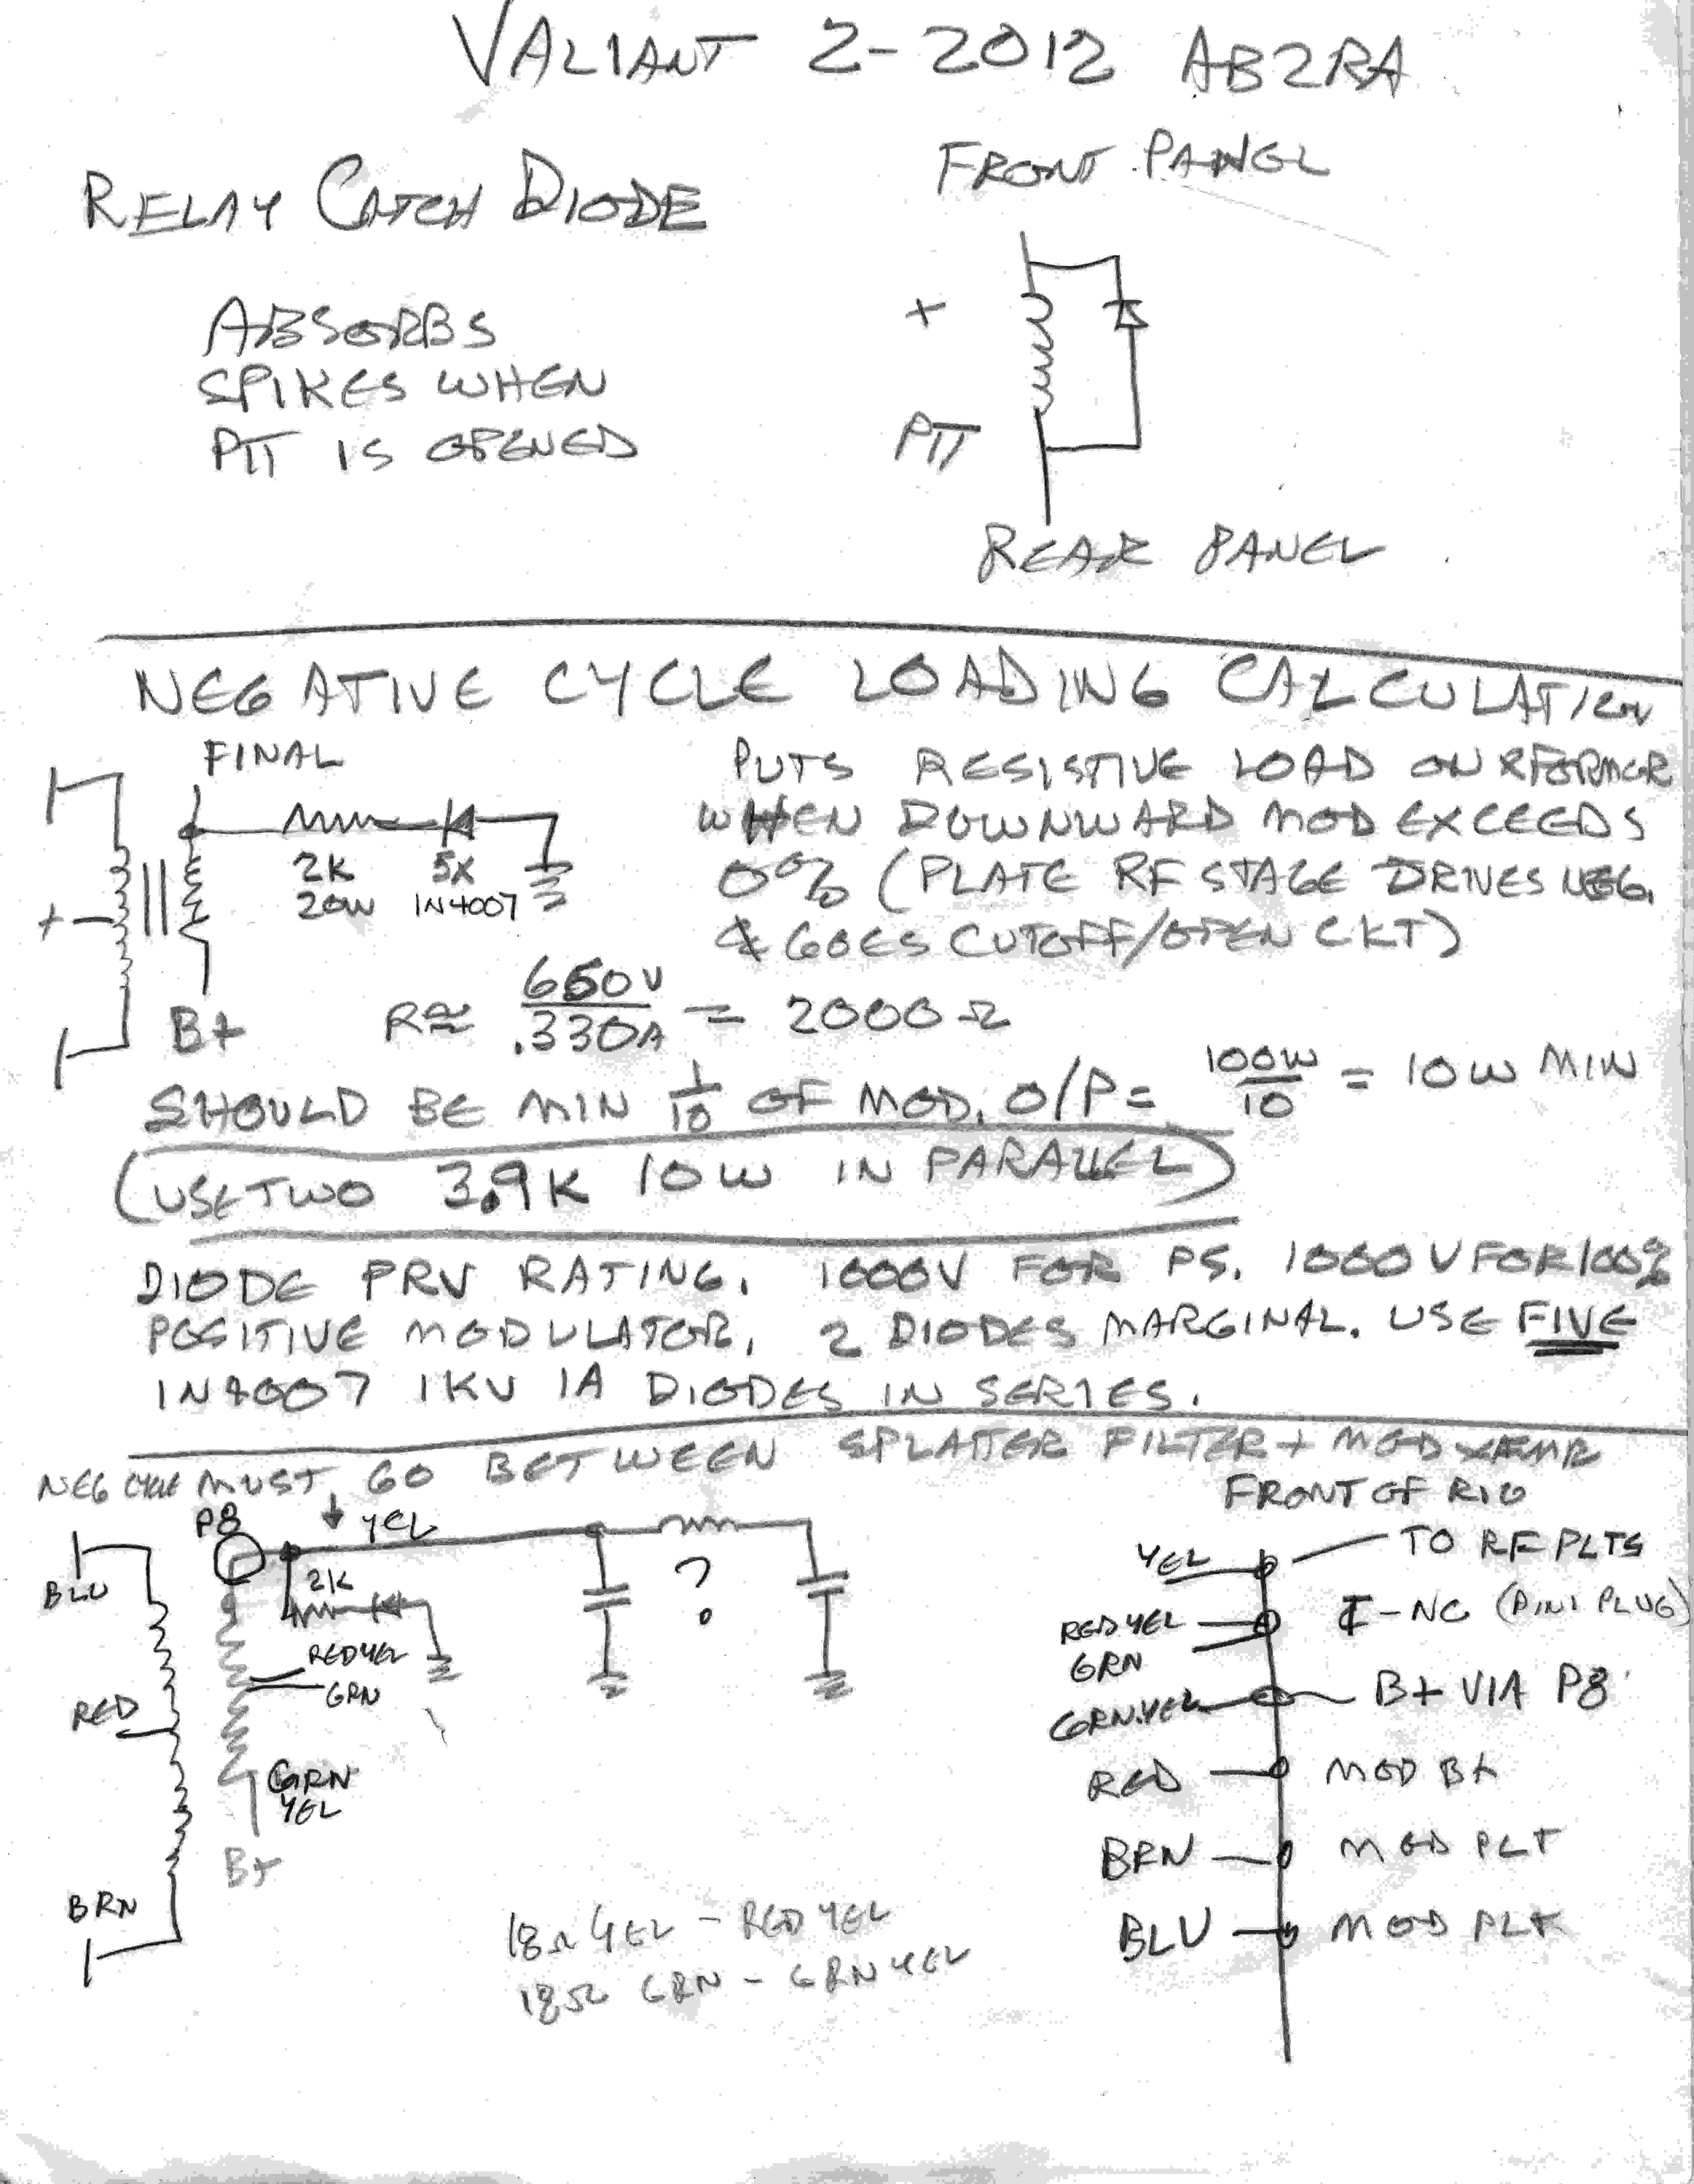 VALIANT 2-2012 AB2RA
RELAY CATCH DIODE
FRONT PANEL
ABSORBS
SPIKES WHEN
PTT IS OPENED
+
PTT
REAR PANEL
NEGATIVE CYCLE LOADING CALCULATION
FINAL
2K
20W
5X
1N4007
+
B+
PUTS RESISTIVE LOAD ON XFORMER
WHEN DOWNWARD MOD EXCEEDS
00% (PLATE RF STAGE DRIVES NEG.
& GOES CUTOFF/OPEN CKT)
R≅ 650V / .330A = 2000 Ω
SHOULD BE MIN 1/10 OF MOD. O/P = 100W/10 = 10W MIN
(USE TWO 3.9K 10W IN PARALLEL)
DIODE PRV RATING. 1000V FOR PS. 1000V FOR 100%
POSITIVE MODULATOR. 2 DIODES MARGINAL. USE FIVE
1N4007 1KV 1A DIODES IN SERIES.
NEG CYCLE MUST GO BETWEEN SPLATTER FILTER + MOD XFRMR
P8
YEL
BLU
2K
?
RED YEL
GRN
RED
GRN
YEL
B+
BRN
18Ω YEL - RED YEL
18Ω GRN - GRN YEL
FRONT OF RIG
YEL TO RF PLTS
RED YEL
GRN
-NC (PIN 1 PLUG)
GRN.YEL B+ VIA P8
RED MOD B+
BRN MOD PLT
BLU MOD PLT